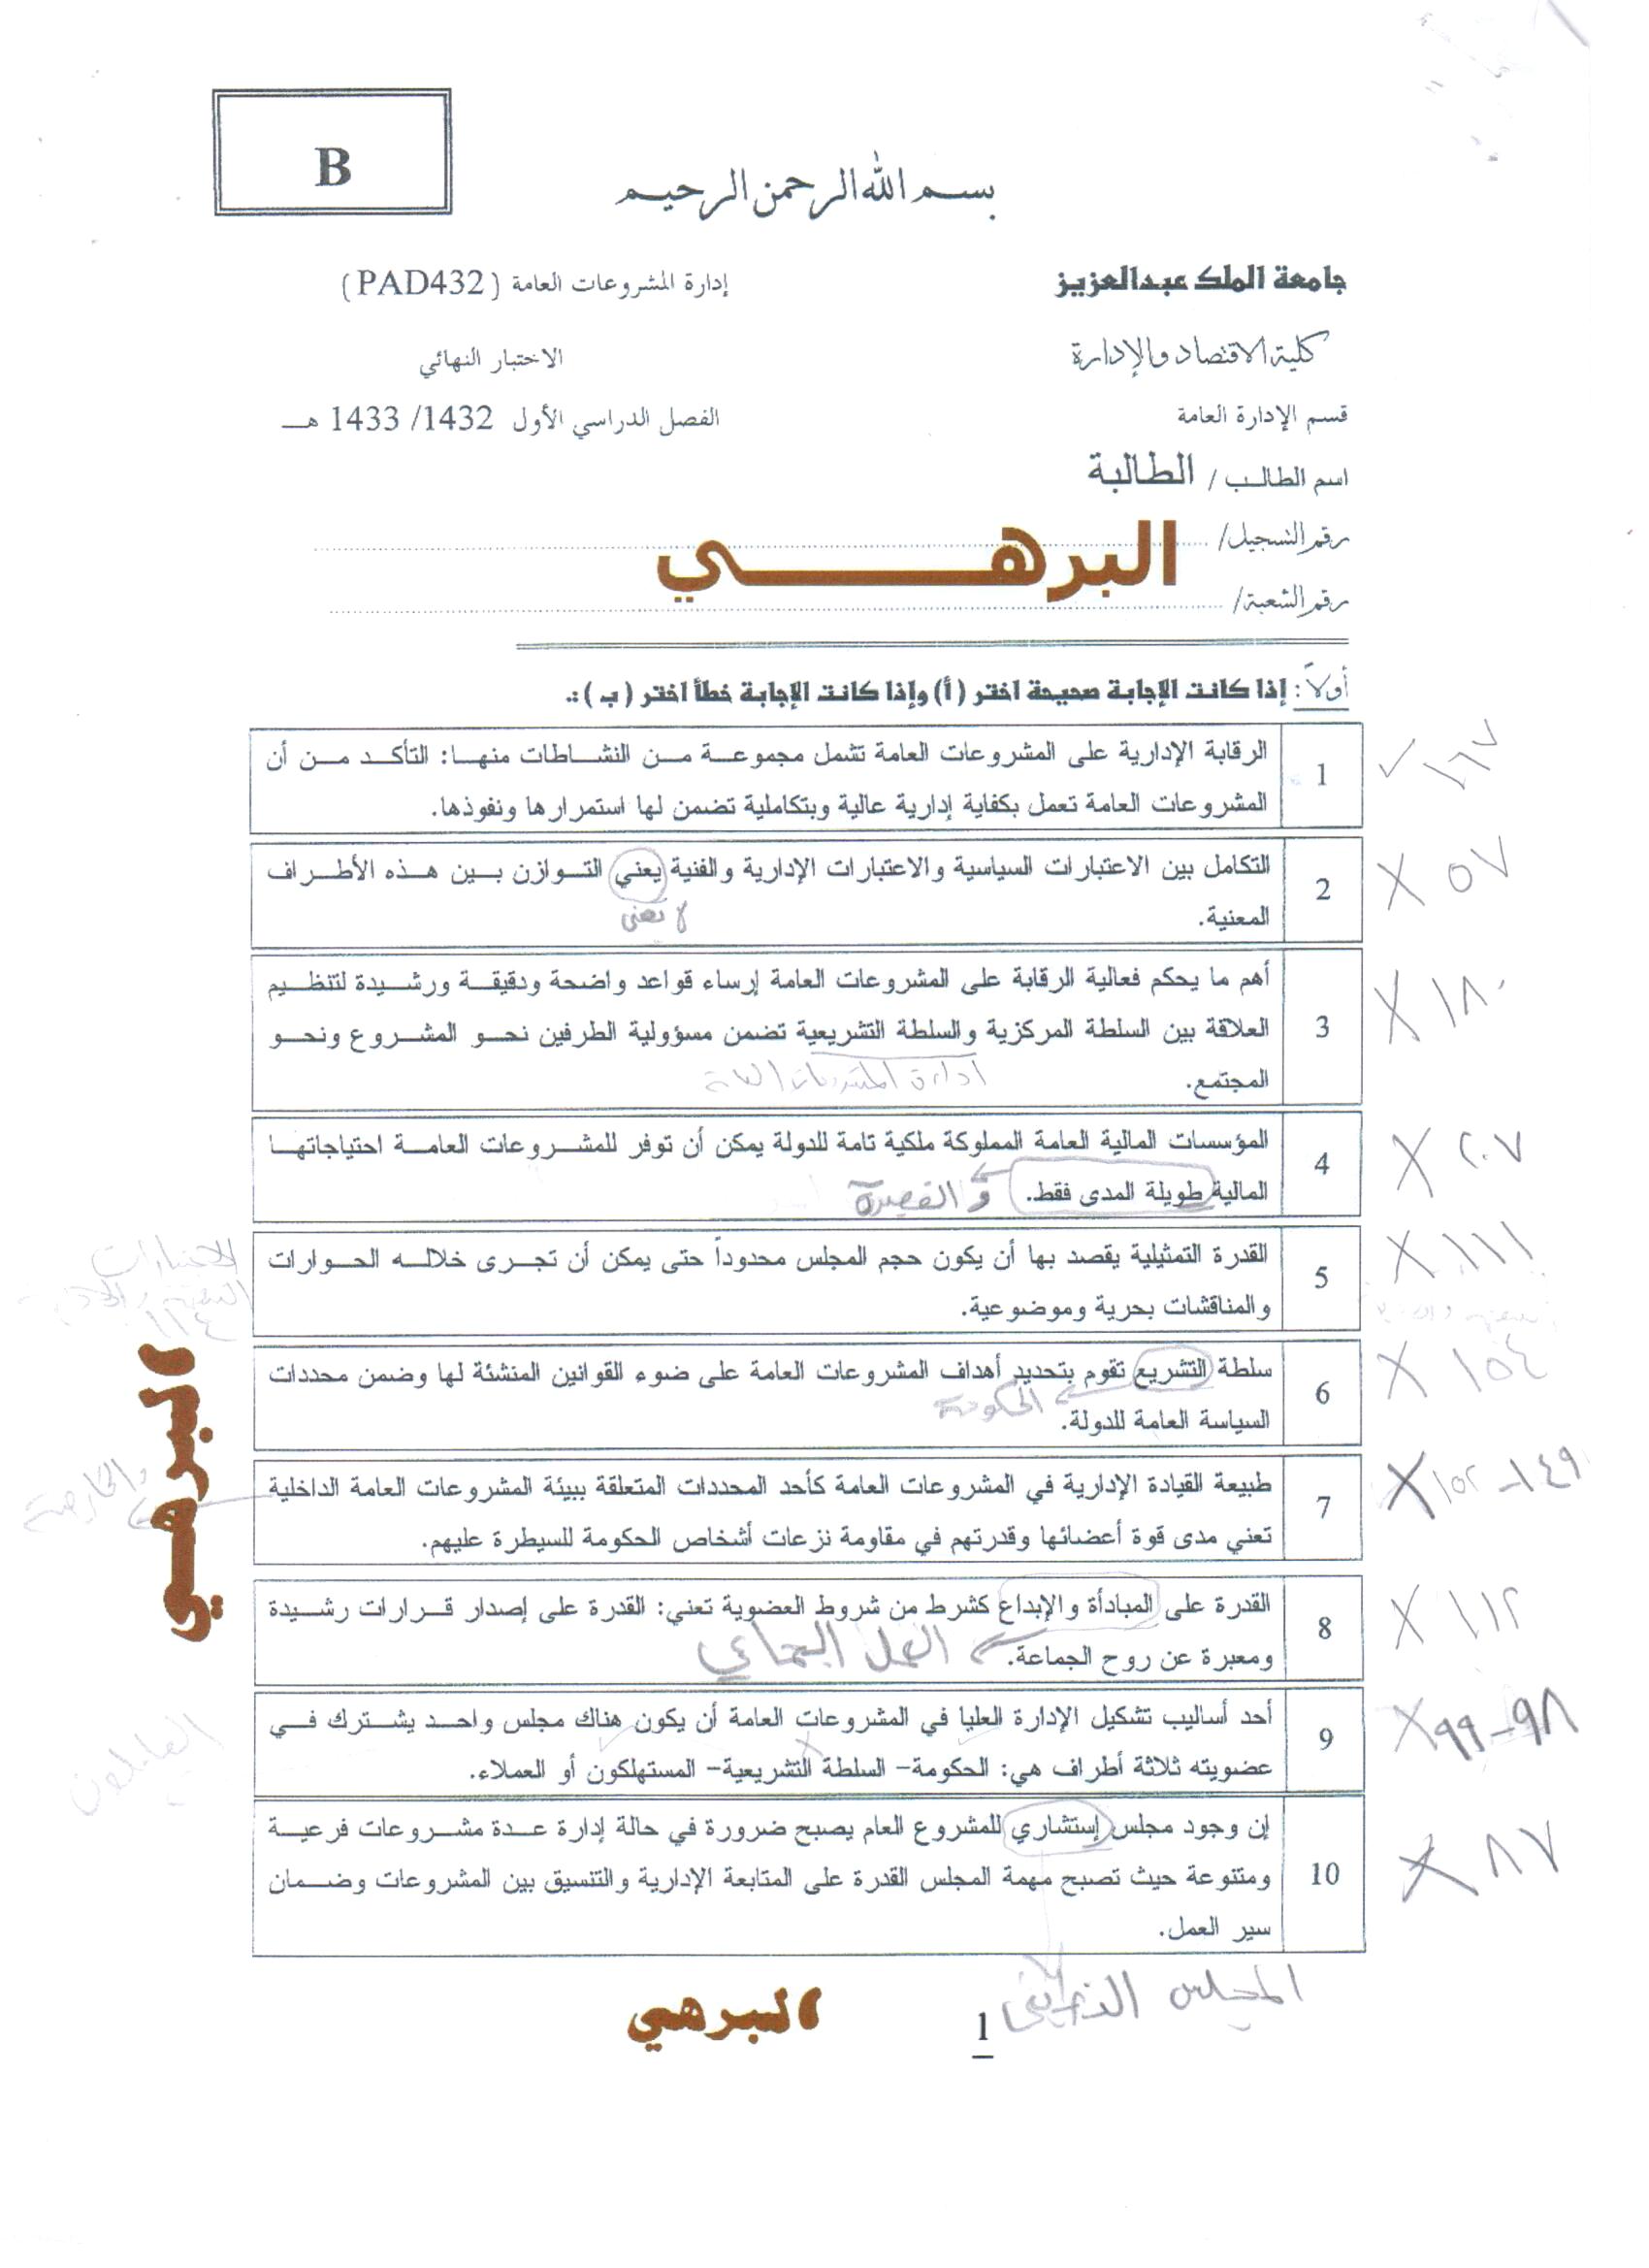 B
بسم الله الرحمن الرحيم
جامعة الملك عبدالعزيز
إدارة المشروعات العامة ( PAD432 )
كلية الاقتصاد والإدارة
الاختبار النهائي
قسم الإدارة العامة
الفصل الدراسي الأول 1432/ 1433 هـ
اسم الطالب / الطالبة
رقم التسجيل/
البرهي
رقم الشعبة/
أولاً: إذا كانت الإجابة صحيحة اختر ( أ ) وإذا كانت الإجابة خطأ اختر ( ب ) :.
1 الرقابة الإدارية على المشروعات العامة تشمل مجموعة من النشاطات منها: التأكد من أن
المشروعات العامة تعمل بكفاية إدارية عالية وبتكاملية تضمن لها استمرارها ونفوذها.
✓ ١٦٧
2 التكامل بين الاعتبارات السياسية والاعتبارات الإدارية والفنية يعني التوازن بين هذه الأطراف
المعنية.
لا يعني
X ٥٧
3 أهم ما يحكم فعالية الرقابة على المشروعات العامة إرساء قواعد واضحة ودقيقة ورشيدة لتنظيم
العلاقة بين السلطة المركزية والسلطة التشريعية تضمن مسؤولية الطرفين نحو المشروع ونحو
المجتمع.
ادارة المشروعات العامة
X ١٨٠
4 المؤسسات المالية العامة المملوكة ملكية تامة للدولة يمكن أن توفر للمشروعات العامة احتياجاتها
المالية طويلة المدى فقط.
و القصيرة
X ٢٠٧
5 القدرة التمثيلية يقصد بها أن يكون حجم المجلس محدوداً حتى يمكن أن تجرى خلاله الحوارات
والمناقشات بحرية وموضوعية.
X ١١١
١١٤
6 سلطة التشريع تقوم بتحديد أهداف المشروعات العامة على ضوء القوانين المنشئة لها وضمن محددات
السياسة العامة للدولة.
الحكومة
X ١٥٤
البرهي
7 طبيعة القيادة الإدارية في المشروعات العامة كأحد المحددات المتعلقة ببيئة المشروعات العامة الداخلية
تعني مدى قوة أعضائها وقدرتهم في مقاومة نزعات أشخاص الحكومة للسيطرة عليهم.
والخارجية
X ١٤٩-١٥٢
8 القدرة على المبادأة والإبداع كشرط من شروط العضوية تعني: القدرة على إصدار قرارات رشيدة
ومعبرة عن روح الجماعة.
العمل الجماعي
X ١١٢
9 أحد أساليب تشكيل الإدارة العليا في المشروعات العامة أن يكون هناك مجلس واحد يشترك في
عضويته ثلاثة أطراف هي: الحكومة- السلطة التشريعية- المستهلكون أو العملاء.
العاملون
X ٩٨-٩٩
10 إن وجود مجلس إستشاري للمشروع العام يصبح ضرورة في حالة إدارة عدة مشروعات فرعية
ومتنوعة حيث تصبح مهمة المجلس القدرة على المتابعة الإدارية والتنسيق بين المشروعات وضمان
سير العمل.
X ٨٧
المجلس
البرهي
1